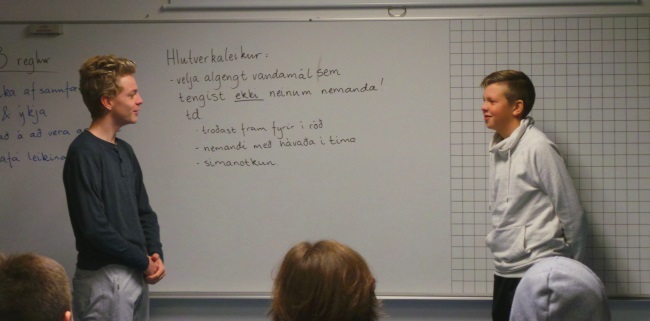 3 reglur
& ýkja
að á að vera
Hlutverkaleikur:
- velja algengt vandamál sem
tengist ekki neinum nemanda!
td
- troðast fram fyrir í röð
- nemandi með hávaða í tíma
- símanotkun